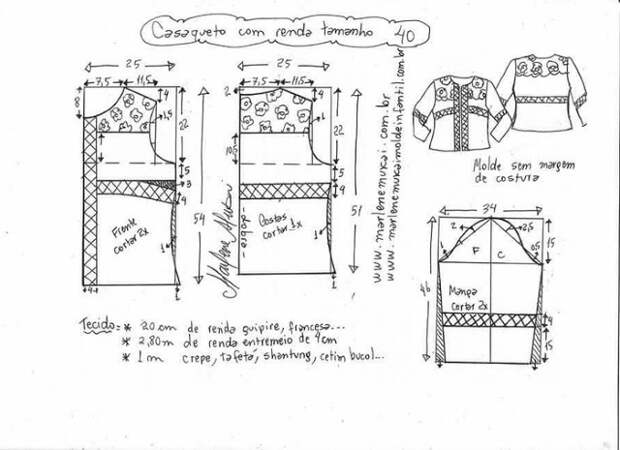 Casaqueto com renda tamanho 40
25
7,5 11,5
8
4
1,5
22
5
3
4
54
1
4
1
Frente
cortar 2x
25
7,5 11,5
2
4
1
22
10,5
5
4
51
1
1
Costas
cortar 1x
-dobra-
Marlene Mukai
www.marlenemukai.com.br
www.marlenemukaimoldeinfantil.com.br
Molde sem margem
de costura
34
2 2,5
15
F C
1 0,5
46
Manga
cortar 2x
4
15
Tecido: * 20 cm de renda guipire, francesa...
* 2,80m de renda entremeio de 4cm
* 1m crepe, tafetá, shantung, cetim bucol...